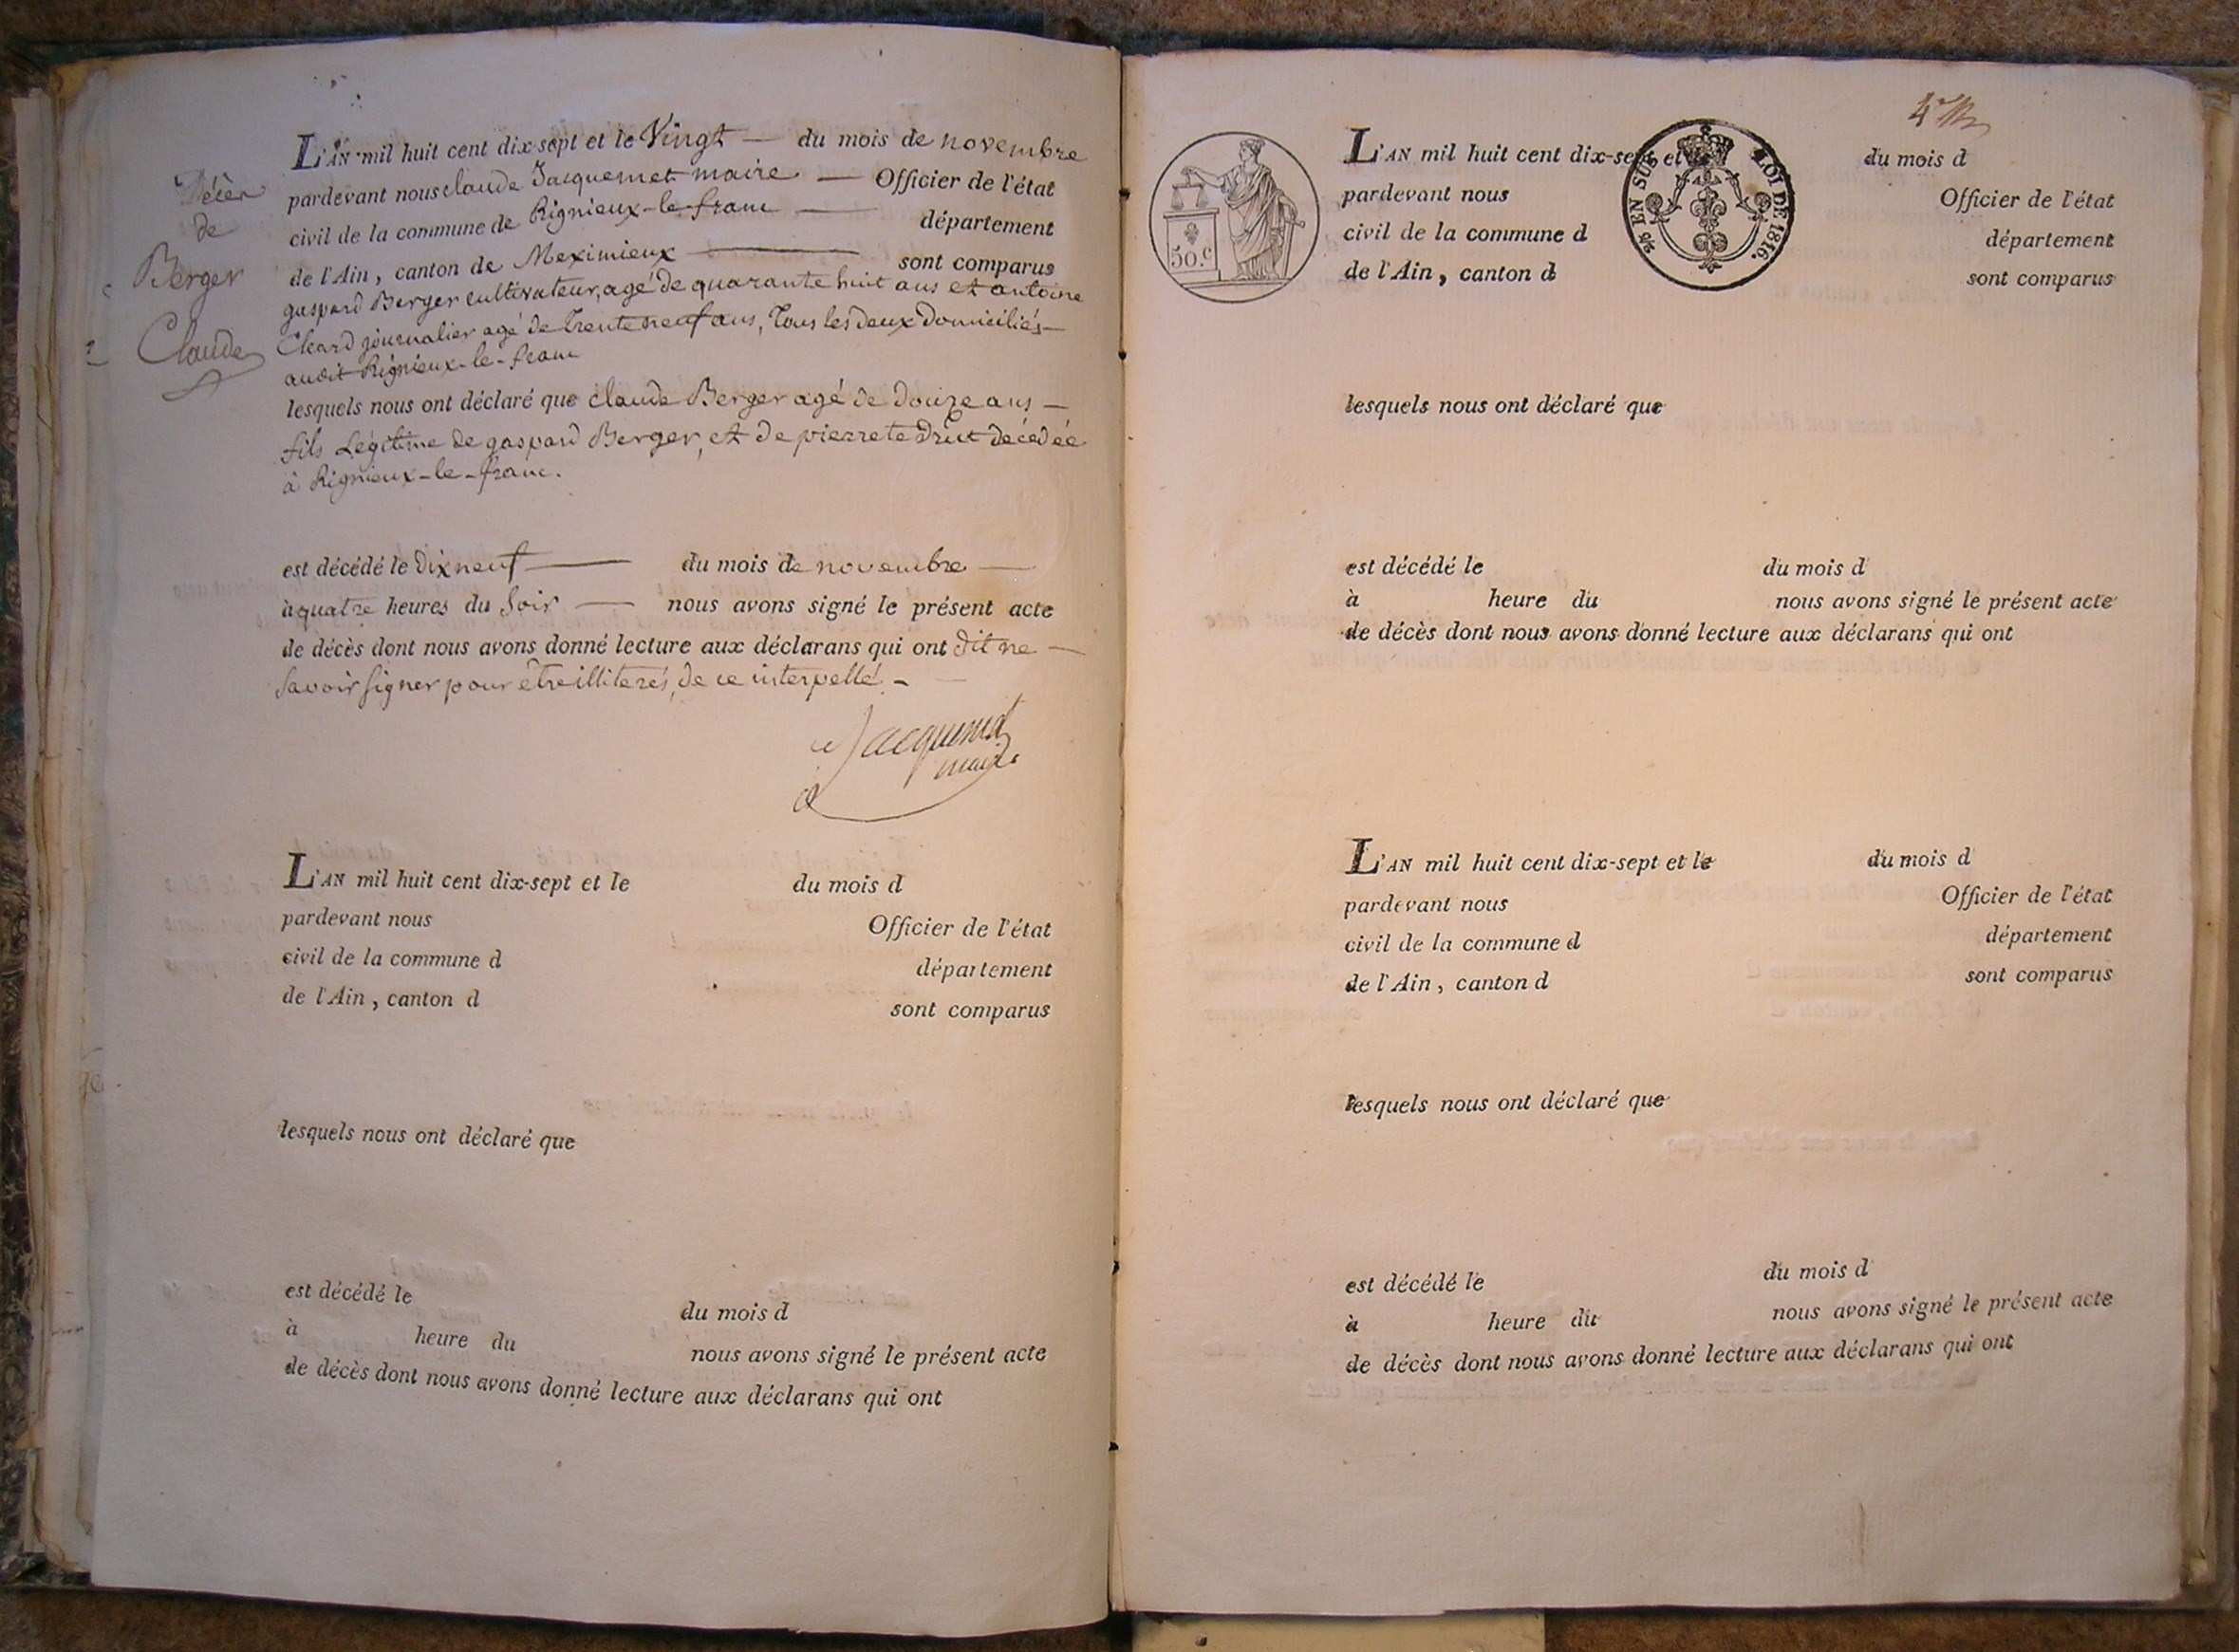 L'AN mil huit cent dix-sept et le Vingt — du mois de novembre
pardevant nous claude Jacquemet maire — Officier de l'état
civil de la commune de Rignieux-le-franc — département
de l'Ain, canton de Meximieux — sont comparus
gaspard Berger cultivateur, agé de quarante huit ans et antoine
journalier agé de trente neuf ans, Tous les deux Domiciliés —
audit Rignieux-le-franc
lesquels nous ont déclaré que claude Berger agé de douze ans —
fils Légitime de gaspard Berger, et de pierrete Druet decédée
à Rignieux-le-franc.
est décédé le dix neuf — du mois de novembre —
à quatre heures du Soir — nous avons signé le présent acte
de décès dont nous avons donné lecture aux déclarans qui ont dit ne —
Savoir signer pour etre illiterés, de ce interpellé. -
Jacquemet
maire
Décès
de
Berger
Claude
L'AN mil huit cent dix-sept et le du mois d
pardevant nous Officier de l'état
civil de la commune d département
de l'Ain, canton d sont comparus
lesquels nous ont déclaré que
est décédé le du mois d
à heure du nous avons signé le présent acte
de décès dont nous avons donné lecture aux déclarans qui ont
50.c
EN SUS LOI DE 1816.
L'AN mil huit cent dix-sept et le du mois d
pardevant nous Officier de l'état
civil de la commune d département
de l'Ain, canton d sont comparus
lesquels nous ont déclaré que
est décédé le du mois d
à heure du nous avons signé le présent acte
de décès dont nous avons donné lecture aux déclarans qui ont
L'AN mil huit cent dix-sept et le du mois d
pardevant nous Officier de l'état
civil de la commune d département
de l'Ain, canton d sont comparus
lesquels nous ont déclaré que
est décédé le du mois d
à heure du nous avons signé le présent acte
de décès dont nous avons donné lecture aux déclarans qui ont